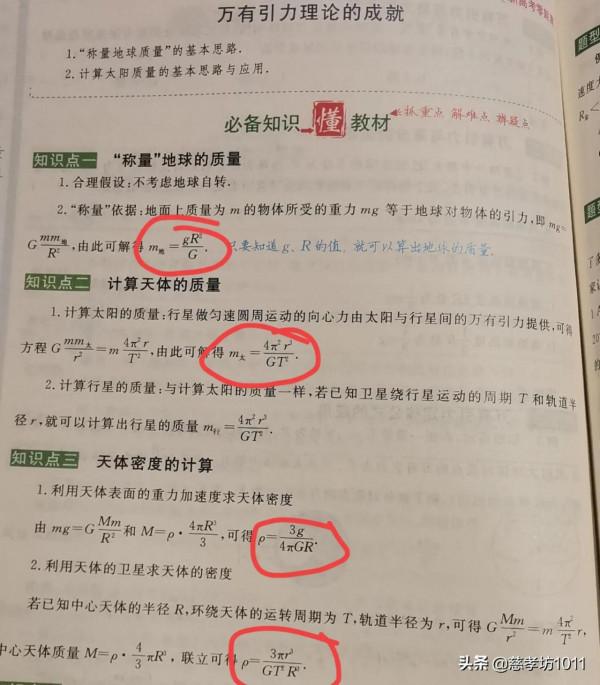 新高考
题型
万有引力理论的成就
1.“称量地球质量”的基本思路.
2.计算太阳质量的基本思路与应用.
必备知识 懂 教材 抓重点 解难点 辨疑点
知识点一 “称量”地球的质量
1.合理假设:不考虑地球自转.
2.“称量”依据:地面上质量为 m 的物体所受的重力 mg 等于地球对物体的引力,即 mg=
G mm地/R²,由此可解得 m地=gR²/G. 只要知道g、R的值,就可以算出地球的质量.
知识点二 计算天体的质量
1.计算太阳的质量:行星做匀速圆周运动的向心力由太阳与行星间的万有引力提供,可得
方程 G mm太/r²=m 4π²r/T²,由此可解得 m太=4π²r³/GT².
2.计算行星的质量:与计算太阳的质量一样,若已知卫星绕行星运动的周期 T 和轨道半
径 r,就可以计算出行星的质量 m行=4π²r³/GT².
知识点三 天体密度的计算
1.利用天体表面的重力加速度求天体密度
由 mg=G Mm/R² 和 M=ρ·4πR³/3,可得 ρ=3g/4πGR.
2.利用天体的卫星求天体的密度
若已知中心天体的半径 R,环绕天体的运转周期为 T,轨道半径为 r,可得 G Mm/r²=m 4π²/T² r,
中心天体质量 M=ρ·4/3 πR³,联立可得 ρ=3πr³/GT²R³.
题型
头条 @慈孝坊1011